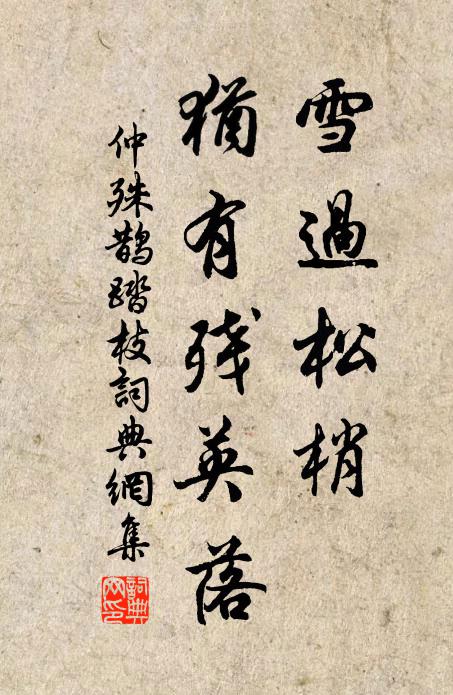 雪過松梢
猶有残英落
仲殊鵲踏枝詞典網集
詞典网印